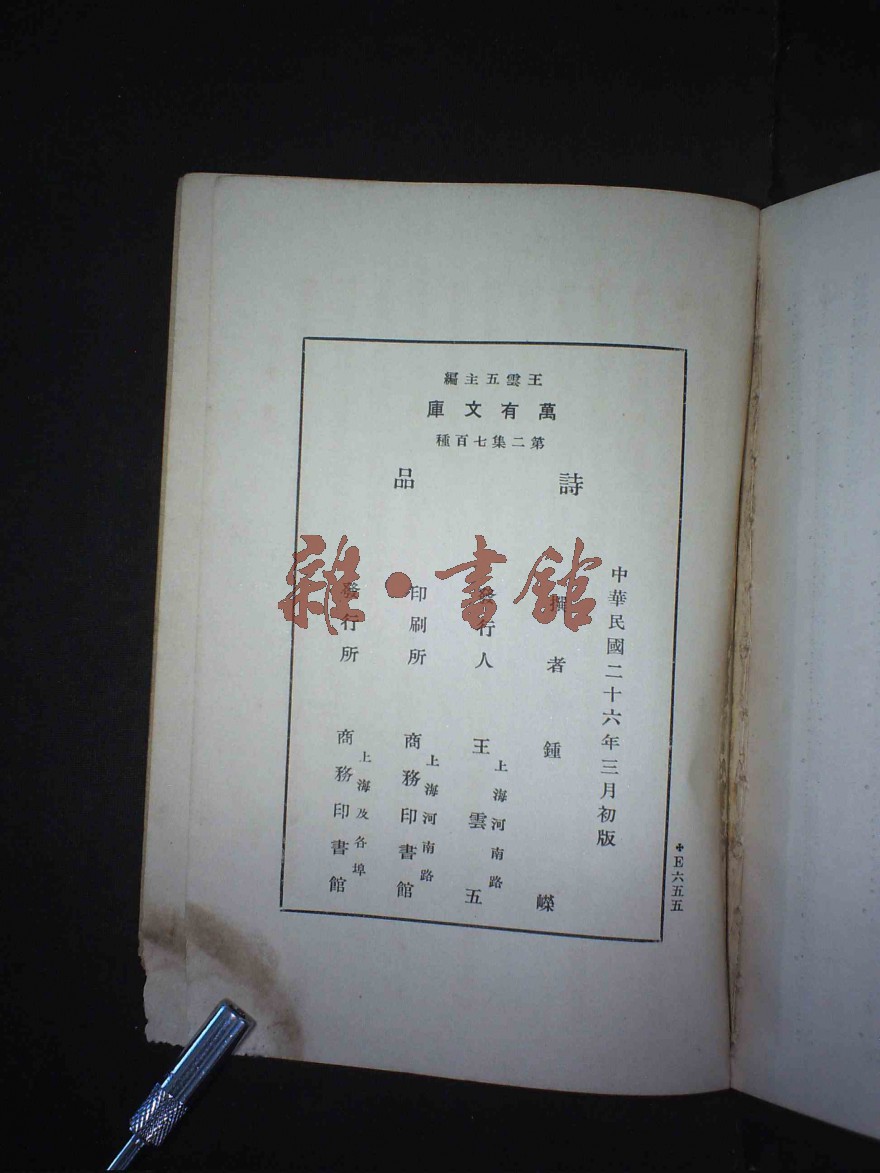 王雲五主編
萬有文庫
第二集七百種
詩品
中華民國二十六年三月初版
撰者 鍾嶸
發行人 王雲五
上海河南路
印刷所 商務印書館
上海河南路
發行所 商務印書館
上海及各埠
雜·書館
✤E六五五